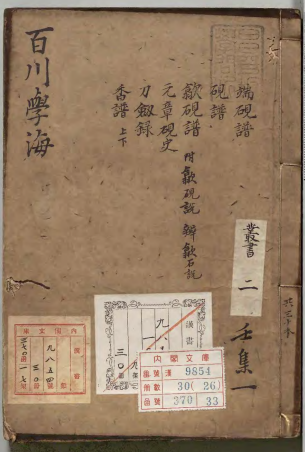 百川學海
端硯譜
硯譜
歙硯譜 附歙硯説 辨歙石説
元章硯史
刀劔錄
香譜 上下
叢書
二
壬集一
漢書
內閣文庫
番號 漢 9854
冊數 30(26)
函號 370 33
內閣文庫
九八五四
三〇